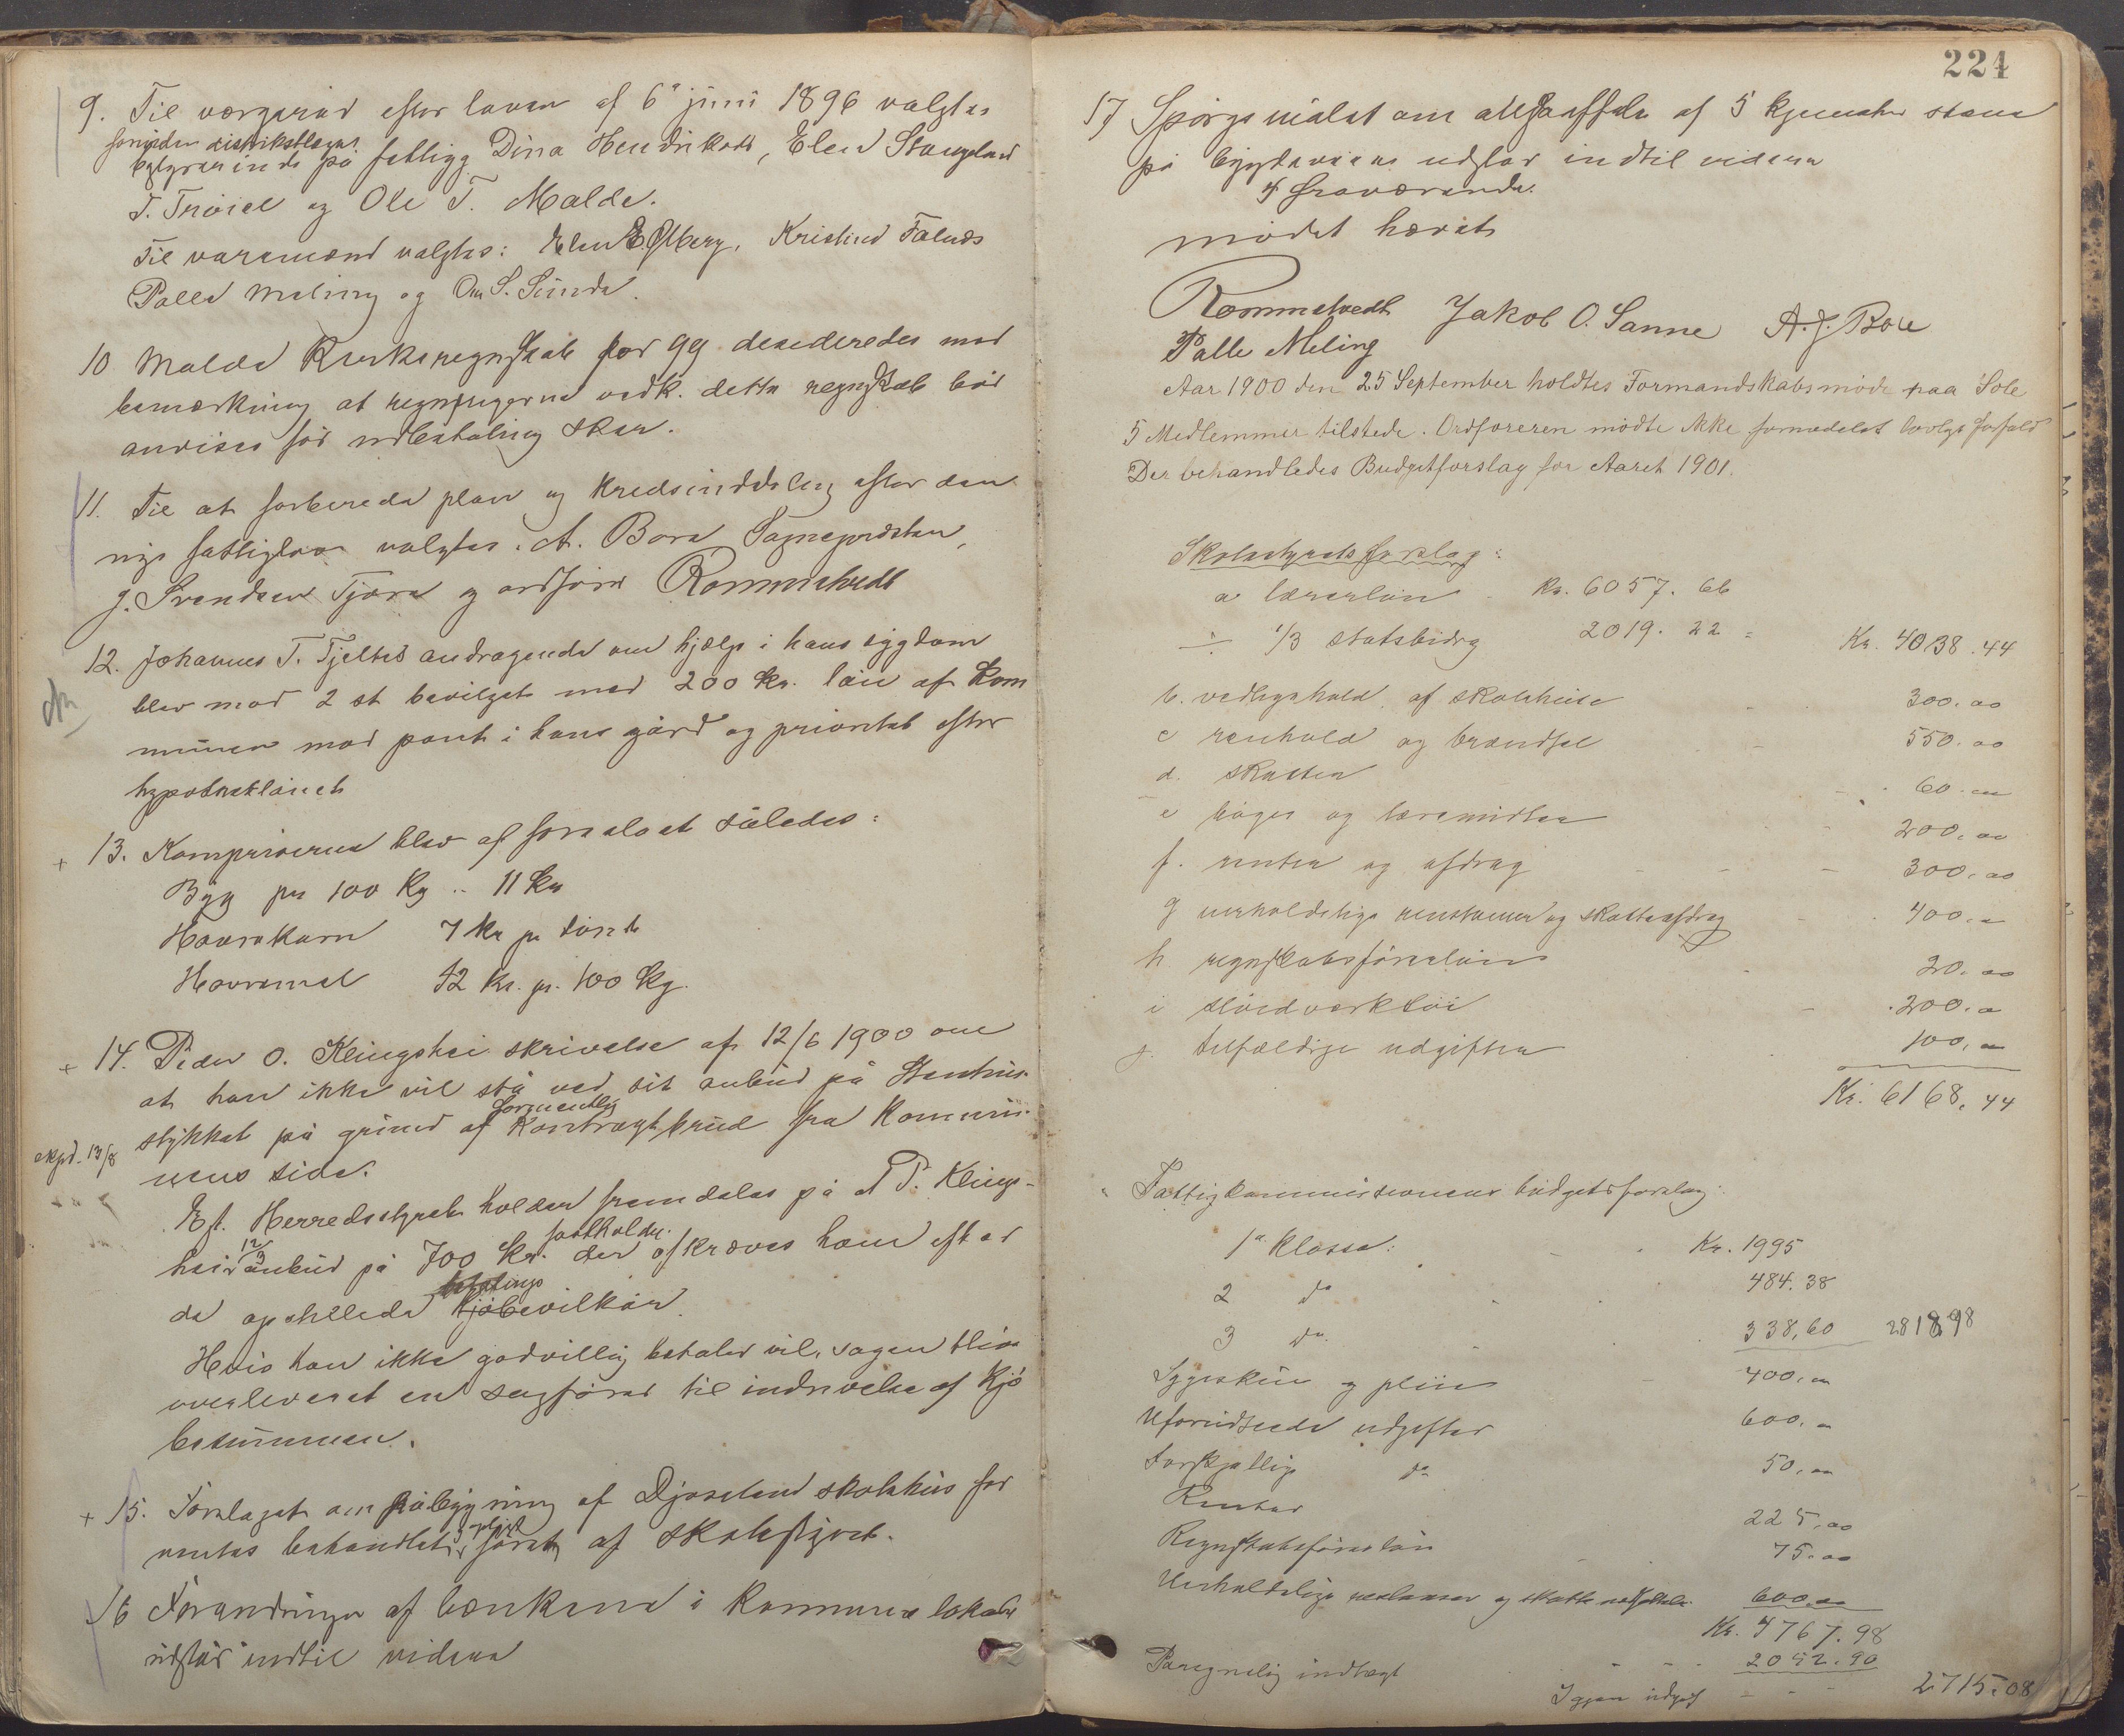 9. Tilværgeraad efter loven af 6te juni 1896 valgtes
foruden distriktslægen
på fattigg Dina Hendriksen, Elen Stangeland
T. Trøiel og Ole T. Malde.
Til varamænd valgtes: Elen E Ølberg, Kristine Tålnes
Palle Meling og Om S. Sunde.
10 Malde Kirkeregnskab for 99 desideredes med
bemærkning at regningerne vedk. dette regnskab bør
anvises før udbetaling sker.
11. Til at forberede plan og kredsinddeling efter den
nye fattiglov valgtes. A. Bore Sogneprdsten,
J. Svendsen Tjora og ordfører Rommetvedt
12. Johannes T. Tjeltes andragende om hjælp i hans sygdom
blev mod 2 st bevilget med 200 Kr. lån af Kom
munen mod pant i hans gård og prioritet efter
hypotheklånet
+ 13. Kornpriserne blev af foreslaaet således:
Byg pr 100 Kg .. 11 Kr
Havrekorn 7 Kr pr tønde
Havremel 12 Kr. pr. 100 Kg.
+ 14. Peder O. Klingshei skrivelse af 12/6 1900 om
at han ikke vil stå ved sit anbud på Stenhus
formentlig
stykket på grund af Kontragtbrud fra Kommu
expd. 13/8
nens side.
Eft. Herredsstyret holder fremdeles på at P. Klings-
12/3 fastholder.
hei anbud på 700 Kr. der afkræves ham efter
betalings
de opstillede kjøbevilkår.
Hvis han ikke godvillig betaler vil sagen blive
overleveret en sagfører til inddrivelse af Kjø
besummen.
+ 15. Forslaget om påbygning af Djoseland skolehus for
ventes behandlet først af skolestyret.
16 Forandringer af bænkene i Kommunelokalet
udstår indtil videre
224
17 Spørgsmålet om anskaffelse af 5 kjemiske stene
på bygdeveiene udstår indtil videre
4 fraværende.
mødet hævet
Rommetvedt Jakob O. Sanne A. J. Bore
Palle Meling
Aar 1900 den 25 September holdtes Formandskabsmøde paa Sole
5 Medlemmer tilstede. Ordføreren mødte ikke formedelst lovlgt forfald
Der behandledes Budgetforslag for Aaret 1901.
Skolestyrets forslag:
a lærerløn Kr. 6057. 66
÷ 1/3 statsbidrg 2019. 22 = Kr. 4038.44
b. vedligehold. af skolehuse 300.00
c renhold og brændsel 550.00
d. skatter 60.00
e bøger og læremidler 200.00
f. renter og afdrag 300.00
g uerholdelige restancer og skatteafdrag 400.00
h regnskabsførerløn 20.00
i sløidverktøi 200.00
j. tilfældige udgifter 100.00
Kr. 6168.44
Fattigkommissionens budgetforslag:
1ste Klasse: Kr. 1995
2 do 484.38
3 do 338,60 2818,98
Sygeskur og pleie 400.00
Uforudseede udgifter 600.00
forskjellige do 50.00
Renter 225.00
Regnskabsførerløn 75.00
Uerholdelige restancer og skatteudfald 600.00
Kr. 4767.98
Paregnelig indtægt 2052.90
Igjen udgift 2715.08